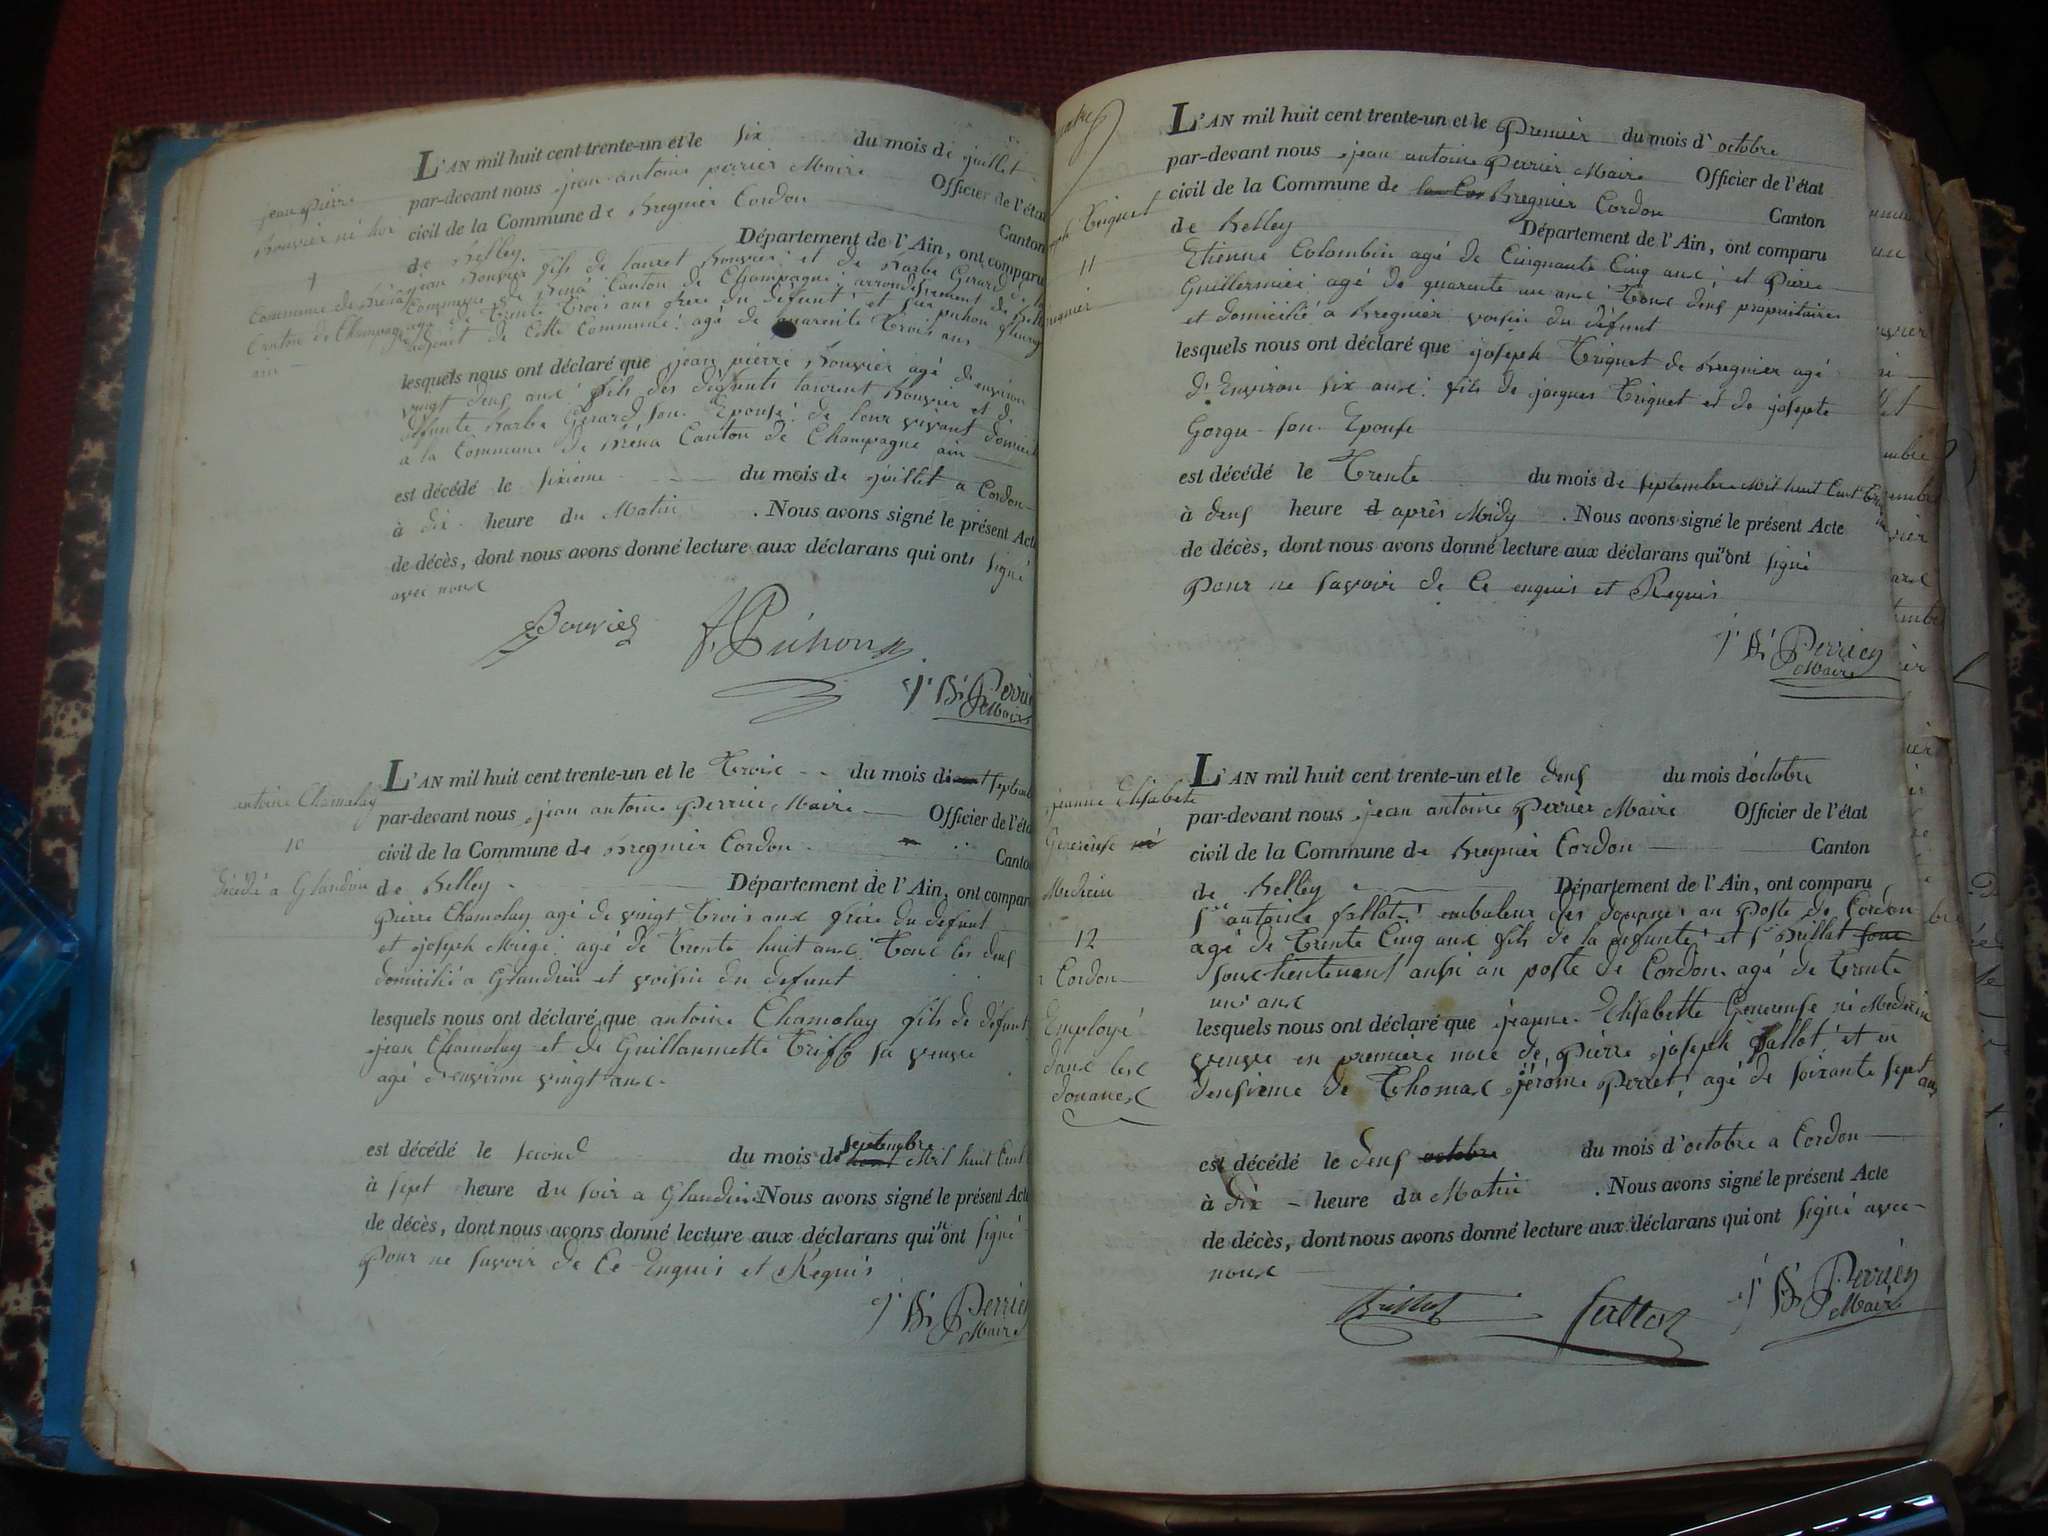 jean pierre
Bouvier
commune de Bréna
Canton de Champagne
ain
L'AN mil huit cent trente-un et le six du mois de juillet
par-devant nous jean antoine perrier Maire Officier de l'état
civil de la Commune de Bregnier Cordon Canton
de Belley Département de l'Ain, ont comparu
jean Bouvier fils de laurent Bouvier et de Barbe Gerard de la
Commune de Bréna Canton de Champagne arrondissement de Belley
agé de trente trois ans frere du defunt et pierre puhon fleury
adjoint de Cette Commune agé de quarente trois ans
lesquels nous ont déclaré que jean pierre Bouvier agé denviron
vingt deux ans fils des defunts laurent Bouvier et d
defunte Barbe Gerard son Epouse de leur vivant domicilié
a la Commune de Bréna Canton de Champagne ain
est décédé le sixieme du mois de juillet a Cordon
à dix heure du Matin . Nous avons signé le présent Acte
de décès, dont nous avons donné lecture aux déclarans qui ont signé
avec nous
Bouvier
J. A. Perrier
Maire
antoine Chamolay
10
décédé a Glandieu
L'AN mil huit cent trente-un et le trois du mois de septembre
par-devant nous jean antoine perrier Maire Officier de l'état
civil de la Commune de Bregnier Cordon Canton
de Belley Département de l'Ain, ont comparu
pierre Chamolay agé de vingt trois ans frere du defunt
et joseph Miege agé de trente huit ans tous les deux
domicilié a Glandieu et voisin du defunt
lesquels nous ont déclaré que antoine Chamolay fils de defunt
jean Chamolay et de Guillaumette sa veuve
agé d'environ vingt ans
est décédé le second du mois de septembre Mil huit Cent
à sept heure du soir a Glandieu Nous avons signé le présent Acte
de décès, dont nous avons donné lecture aux déclarans qui n'ont signé
pour ne savoir de Ce Enquis et Requis
J. A. Perrier
Maire
joseph Triguet
11
Bregnier
L'AN mil huit cent trente-un et le premier du mois d'octobre
par-devant nous jean antoine perrier Maire Officier de l'état
civil de la Commune de Bregnier Cordon Canton
de Belley Département de l'Ain, ont comparu
Etienne Colombin agé de Cinquante Cinq ans et pierre
Guillermier agé de quarente un ans tous deux proprietaires
et domicilié a Bregnier voisin du défunt
lesquels nous ont déclaré que joseph Triguet de Bregnier agé
d'Environ six ans fils de jacques Triguet et de josepte
Gorgu son Epouse
est décédé le Trente du mois de septembre Mil huit Cent
à deux heure après Midy . Nous avons signé le présent Acte
de décès, dont nous avons donné lecture aux déclarans qui n'ont signé
pour ne savoir de Ce enquis et Requis
J. A. Perrier
Maire
jeanne Elisabete
Genereuse né
Medecin
12
a Cordon
Employé
dans les
douanes
L'AN mil huit cent trente-un et le deux du mois d'octobre
par-devant nous jean antoine perrier Maire Officier de l'état
civil de la Commune de Bregnier Cordon Canton
de Belley Département de l'Ain, ont comparu
Sr antoine fallot des douanes au poste de Cordon
agé de trente Cinq ans fils de la defunte et Sr Billot sous
sous lieutenant aussi au poste de Cordon agé de trente
un ans
lesquels nous ont déclaré que jeanne Elisabette Genereuse né Medecin
veuve en premiere noce de pierre joseph fallot et en
deusieme de Thomas jérome perret agé de soixante sept ans
est décédé le deux octobre du mois d'octobre a Cordon
à dix heure du Matin . Nous avons signé le présent Acte
de décès, dont nous avons donné lecture aux déclarans qui ont signé avec
nous
Billot
fallot
J. A. Perrier
Maire